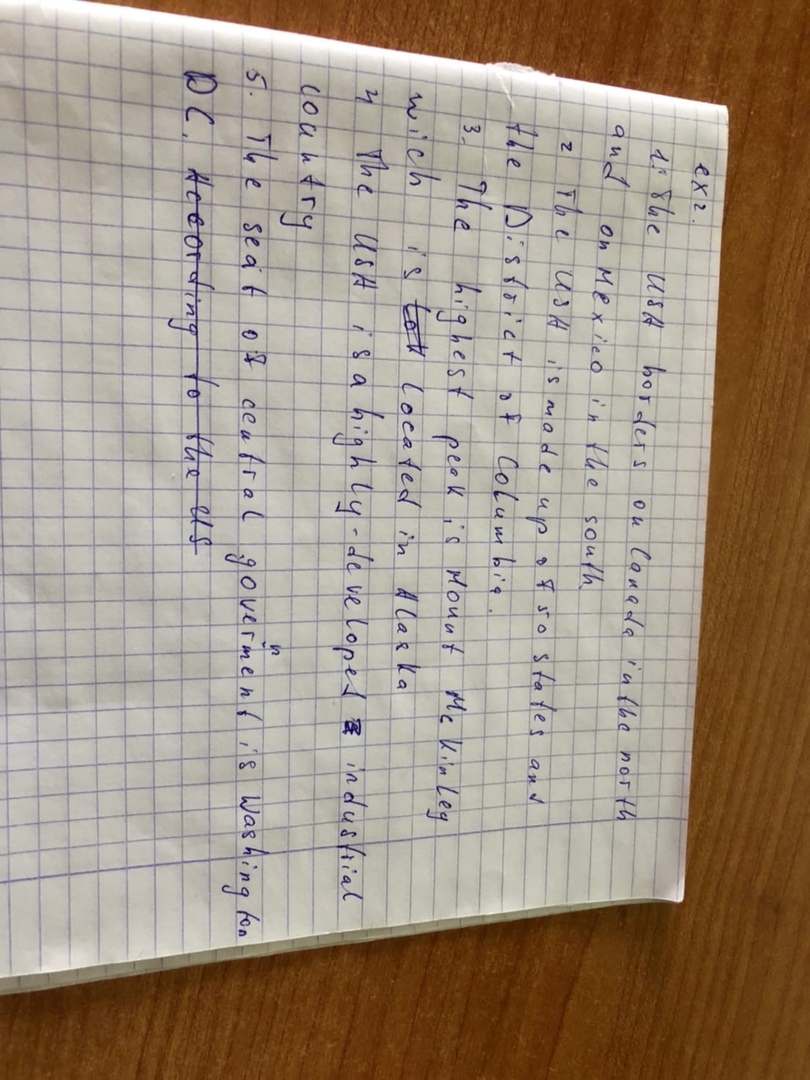 ex2.
1. The USA borders on Canada in the north
and on Mexico in the south.
2 The USA is made up of 50 states and
the District of Columbia.
3. The highest peak is Mount McKinley
wich is located in Alaska
4 The USA is a highly-developed industrial
country
5. The seat of central government is Washington
DC. According to the US